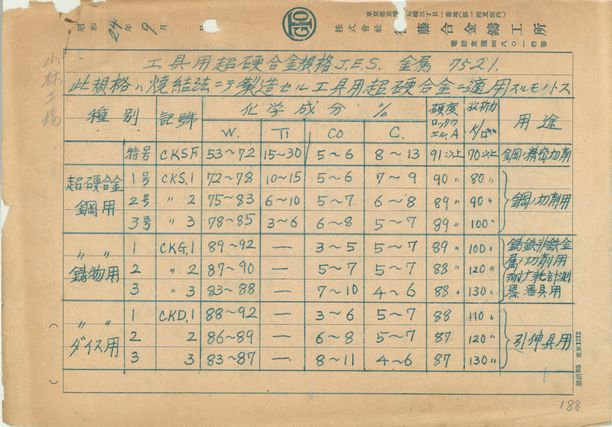 東京都京橋區
株式會社 藤合金鑄工所
電話京橋
昭和24年9月 日
小林工場
工具用超硬合金規格 J.E.S. 金屬 7521.
此規格ハ焼結法ニテ製造セル工具用超硬合金ニ適用スルモノトス
種別 記號 化学成分 % 硬度ロックウエル.A 抗折力 用途
W. Ti CO C.
特号 CKS.F 53~72 15~30 5~6 8~13 91以上 70以上 鋼ノ精密切削
超硬合金鋼用 1号 CKS.1 72~78 10~15 5~6 7~9 90〃 80〃 鋼ノ切削用
2号 〃2 75~83 6~10 5~7 6~8 89〃 90〃
3号 〃3 78~85 3~6 6~8 5~7 89〃 100〃
〃〃鑄物用 1 CKG.1 89~92 — 3~5 5~7 89〃 100〃 鑄鉄非鉄金
2 〃2 87~90 — 5~7 5~7 88〃 120〃 属ノ切削用
3 〃3 83~88 — 7~10 4~6 88〃 130〃 耐摩耗計測器器具用
〃〃ダイス用 1 CKD.1 88~92 — 3~6 5~7 88 110〃 引伸具用
2 2 86~89 — 6~8 5~7 87 120〃
3 3 83~87 — 8~11 4~6 87 130〃
188